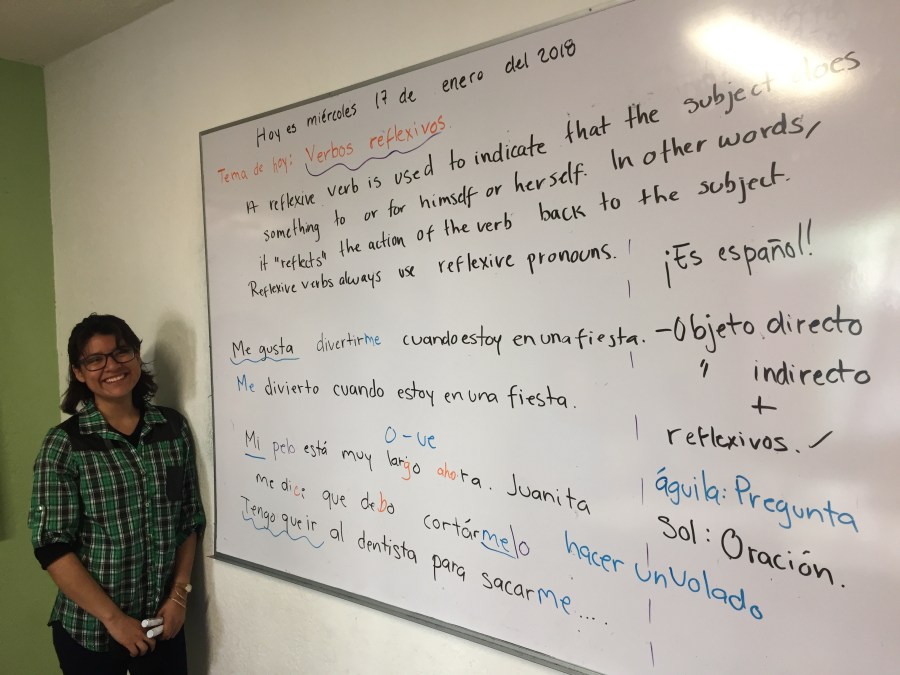 Hoy es miércoles 17 de enero del 2018
Tema de hoy: Verbos reflexivos.
A reflexive verb is used to indicate that the subject does
something to or for himself or herself. In other words,
it "reflects" the action of the verb back to the subject.
Reflexive verbs always use reflexive pronouns.
Me gusta divertirme cuando estoy en una fiesta.
Me divierto cuando estoy en una fiesta.
O-ue
Mi pelo está muy largo ahora. Juanita
me dice que debo cortármelo
Tengo que ir al dentista para sacarme....
¡Es español!
-Objeto directo
" indirecto
+
reflexivos.
águila: Pregunta
Sol: Oración.
hacer un volado